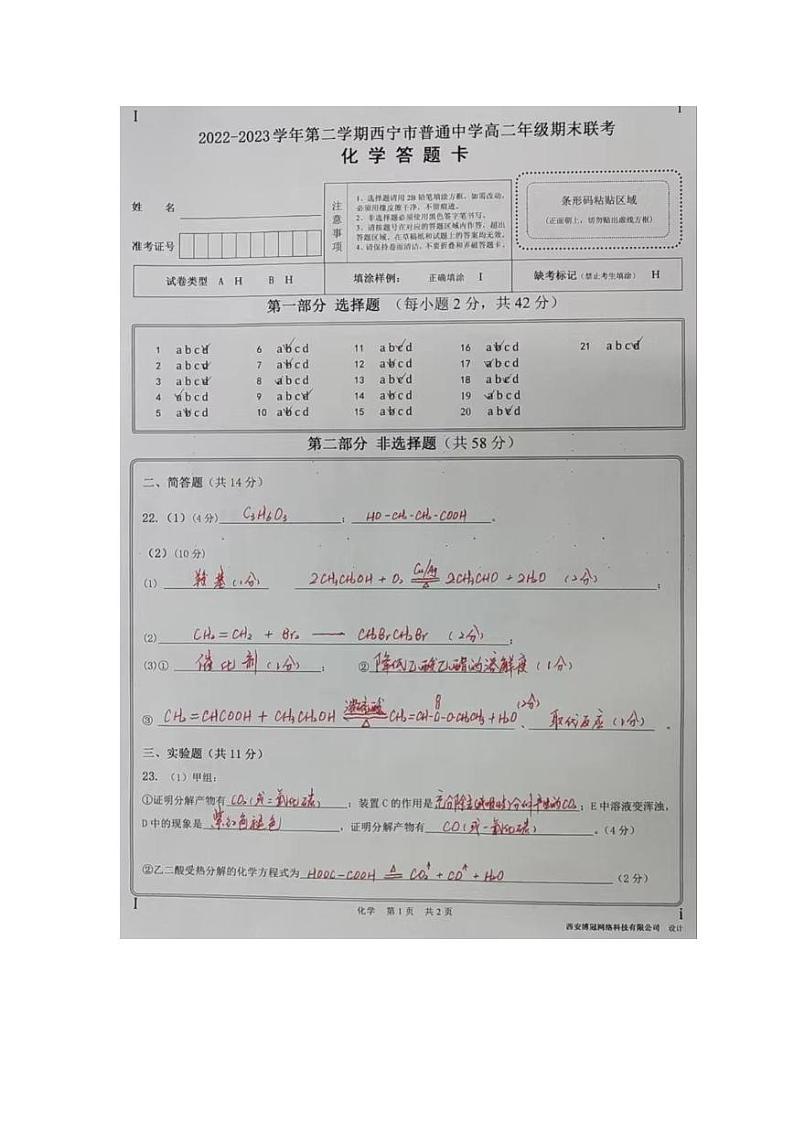 2022-2023学年第二学期西宁市普通中学高二年级期末联考
化 学 答 题 卡
姓 名
准考证号
注意事项
1、选择题请用2B铅笔填涂方框，如需改动，
必须用橡皮擦干净，不留痕迹。
2、非选择题必须使用黑色签字笔书写。
3、请按题号在对应的答题区域内作答，超出
答题区域、在草稿纸和试题上的答案均无效。
4、请保持卷面清洁、不要折叠和弄破答题卡。
条形码粘贴区域
(正面朝上，切勿贴出虚线方框)
试卷类型 A H B H
填涂样例： 正确填涂 I
缺考标记(禁止考生填涂) H
第一部分 选择题 (每小题2分，共42分)
1 a b c d 6 a b c d 11 a b c d 16 a b c d 21 a b c d
2 a b c d 7 a b c d 12 a b c d 17 a b c d
3 a b c d 8 a b c d 13 a b c d 18 a b c d
4 a b c d 9 a b c d 14 a b c d 19 a b c d
5 a b c d 10 a b c d 15 a b c d 20 a b c d
第二部分 非选择题(共58分)
二、简答题(共14分)
22.(1)(4分) C₃H₆O₃ ； HO-CH₂-CH₂-COOH 。
(2)(10分)
(1) 羟基(1分) 2CH₃CH₂OH + O₂ Cu/Ag △ 2CH₃CHO + 2H₂O (2分) ；
(2) CH₂=CH₂ + Br₂ — CH₂BrCH₂Br (2分) ；
(3)① 催化剂(1分) ； ② 降低乙酸乙酯的溶解度(1分)
③ CH₂=CHCOOH + CH₃CH₂OH 浓硫酸 △ CH₂=CH-C-O-CH₂CH₃ + H₂O (2分) 、 取代反应(1分) 。
三、实验题(共11分)
23.(1)甲组：
①证明分解产物有 CO₂(或二氧化碳) ；装置C的作用是 充分除去(或吸收)分解产生的CO₂ ；E中溶液变浑浊，
D中的现象是 紫红色褪色 ，证明分解产物有 CO(或一氧化碳) 。(4分)
②乙二酸受热分解的化学方程式为 HOOC-COOH △ CO₂↑ + CO↑ + H₂O (2分)
化学 第1页 共2页
西安博冠网络科技有限公司 设计